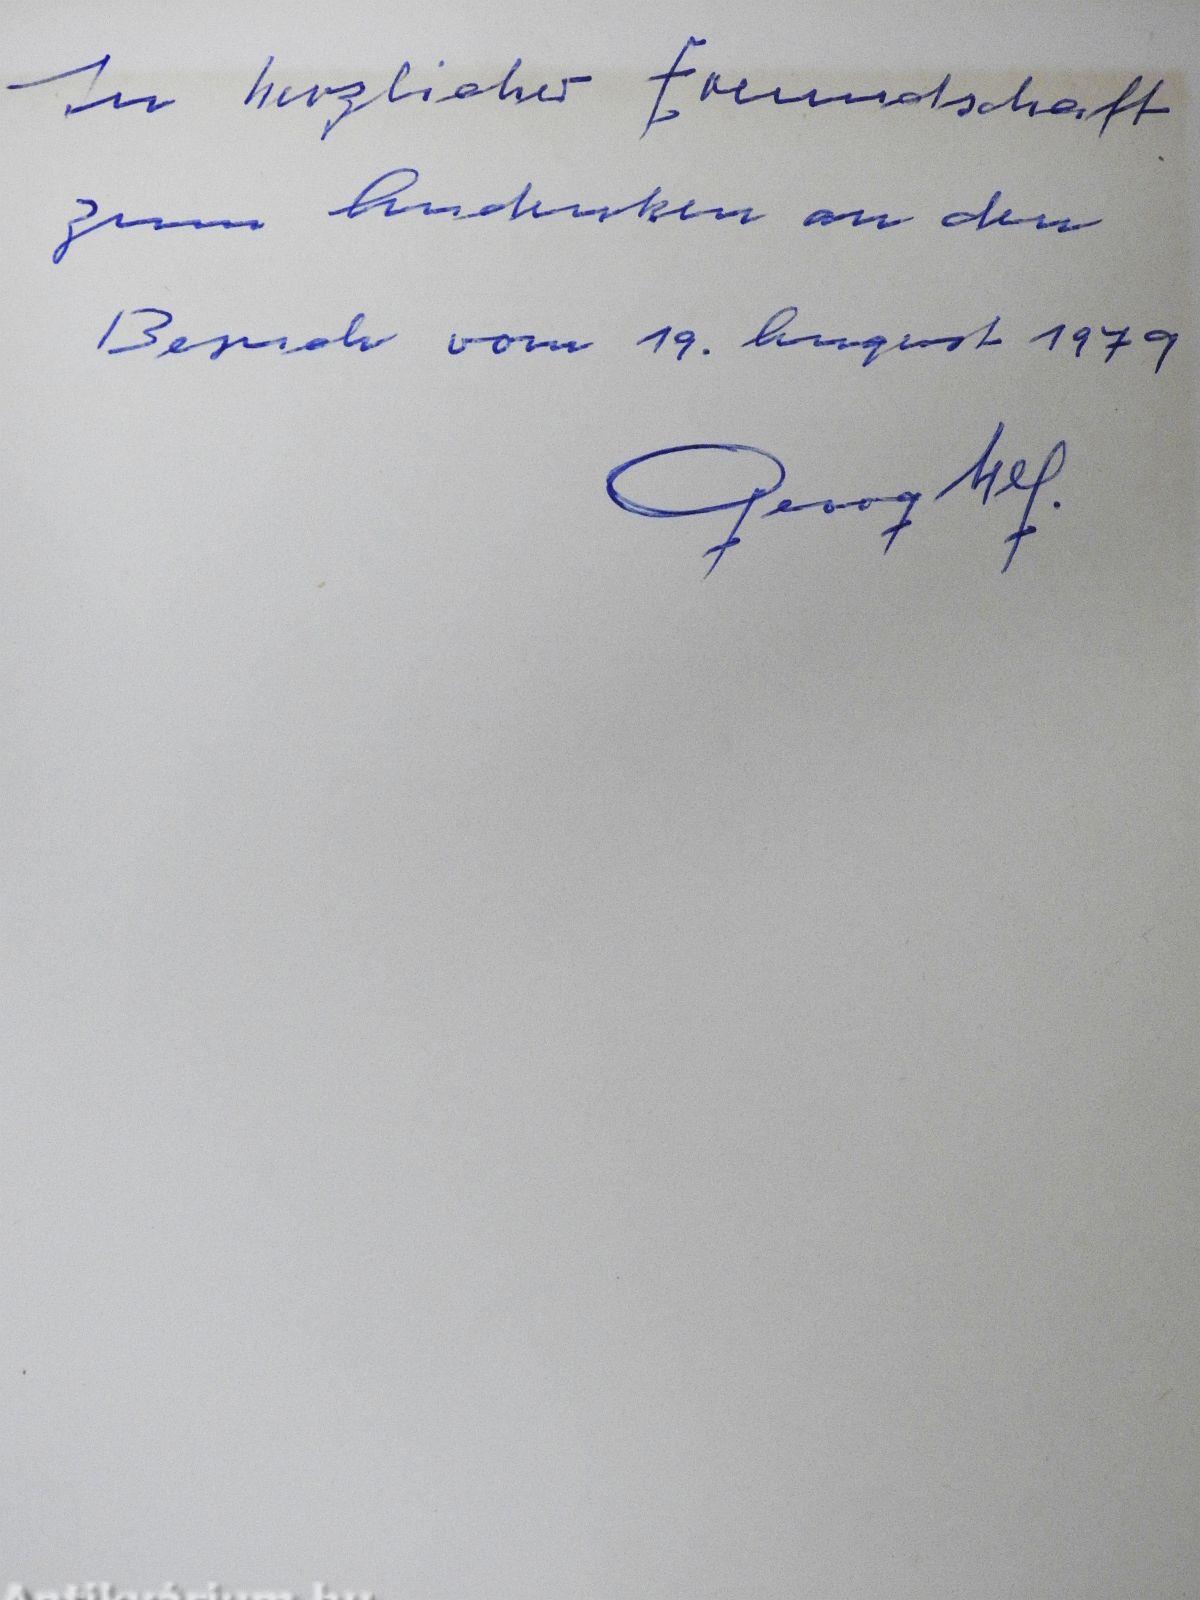 In herzlicher Freundschaft
zum Andenken an den
Besuch vom 19. August 1979
Georg
Antikvárium.hu